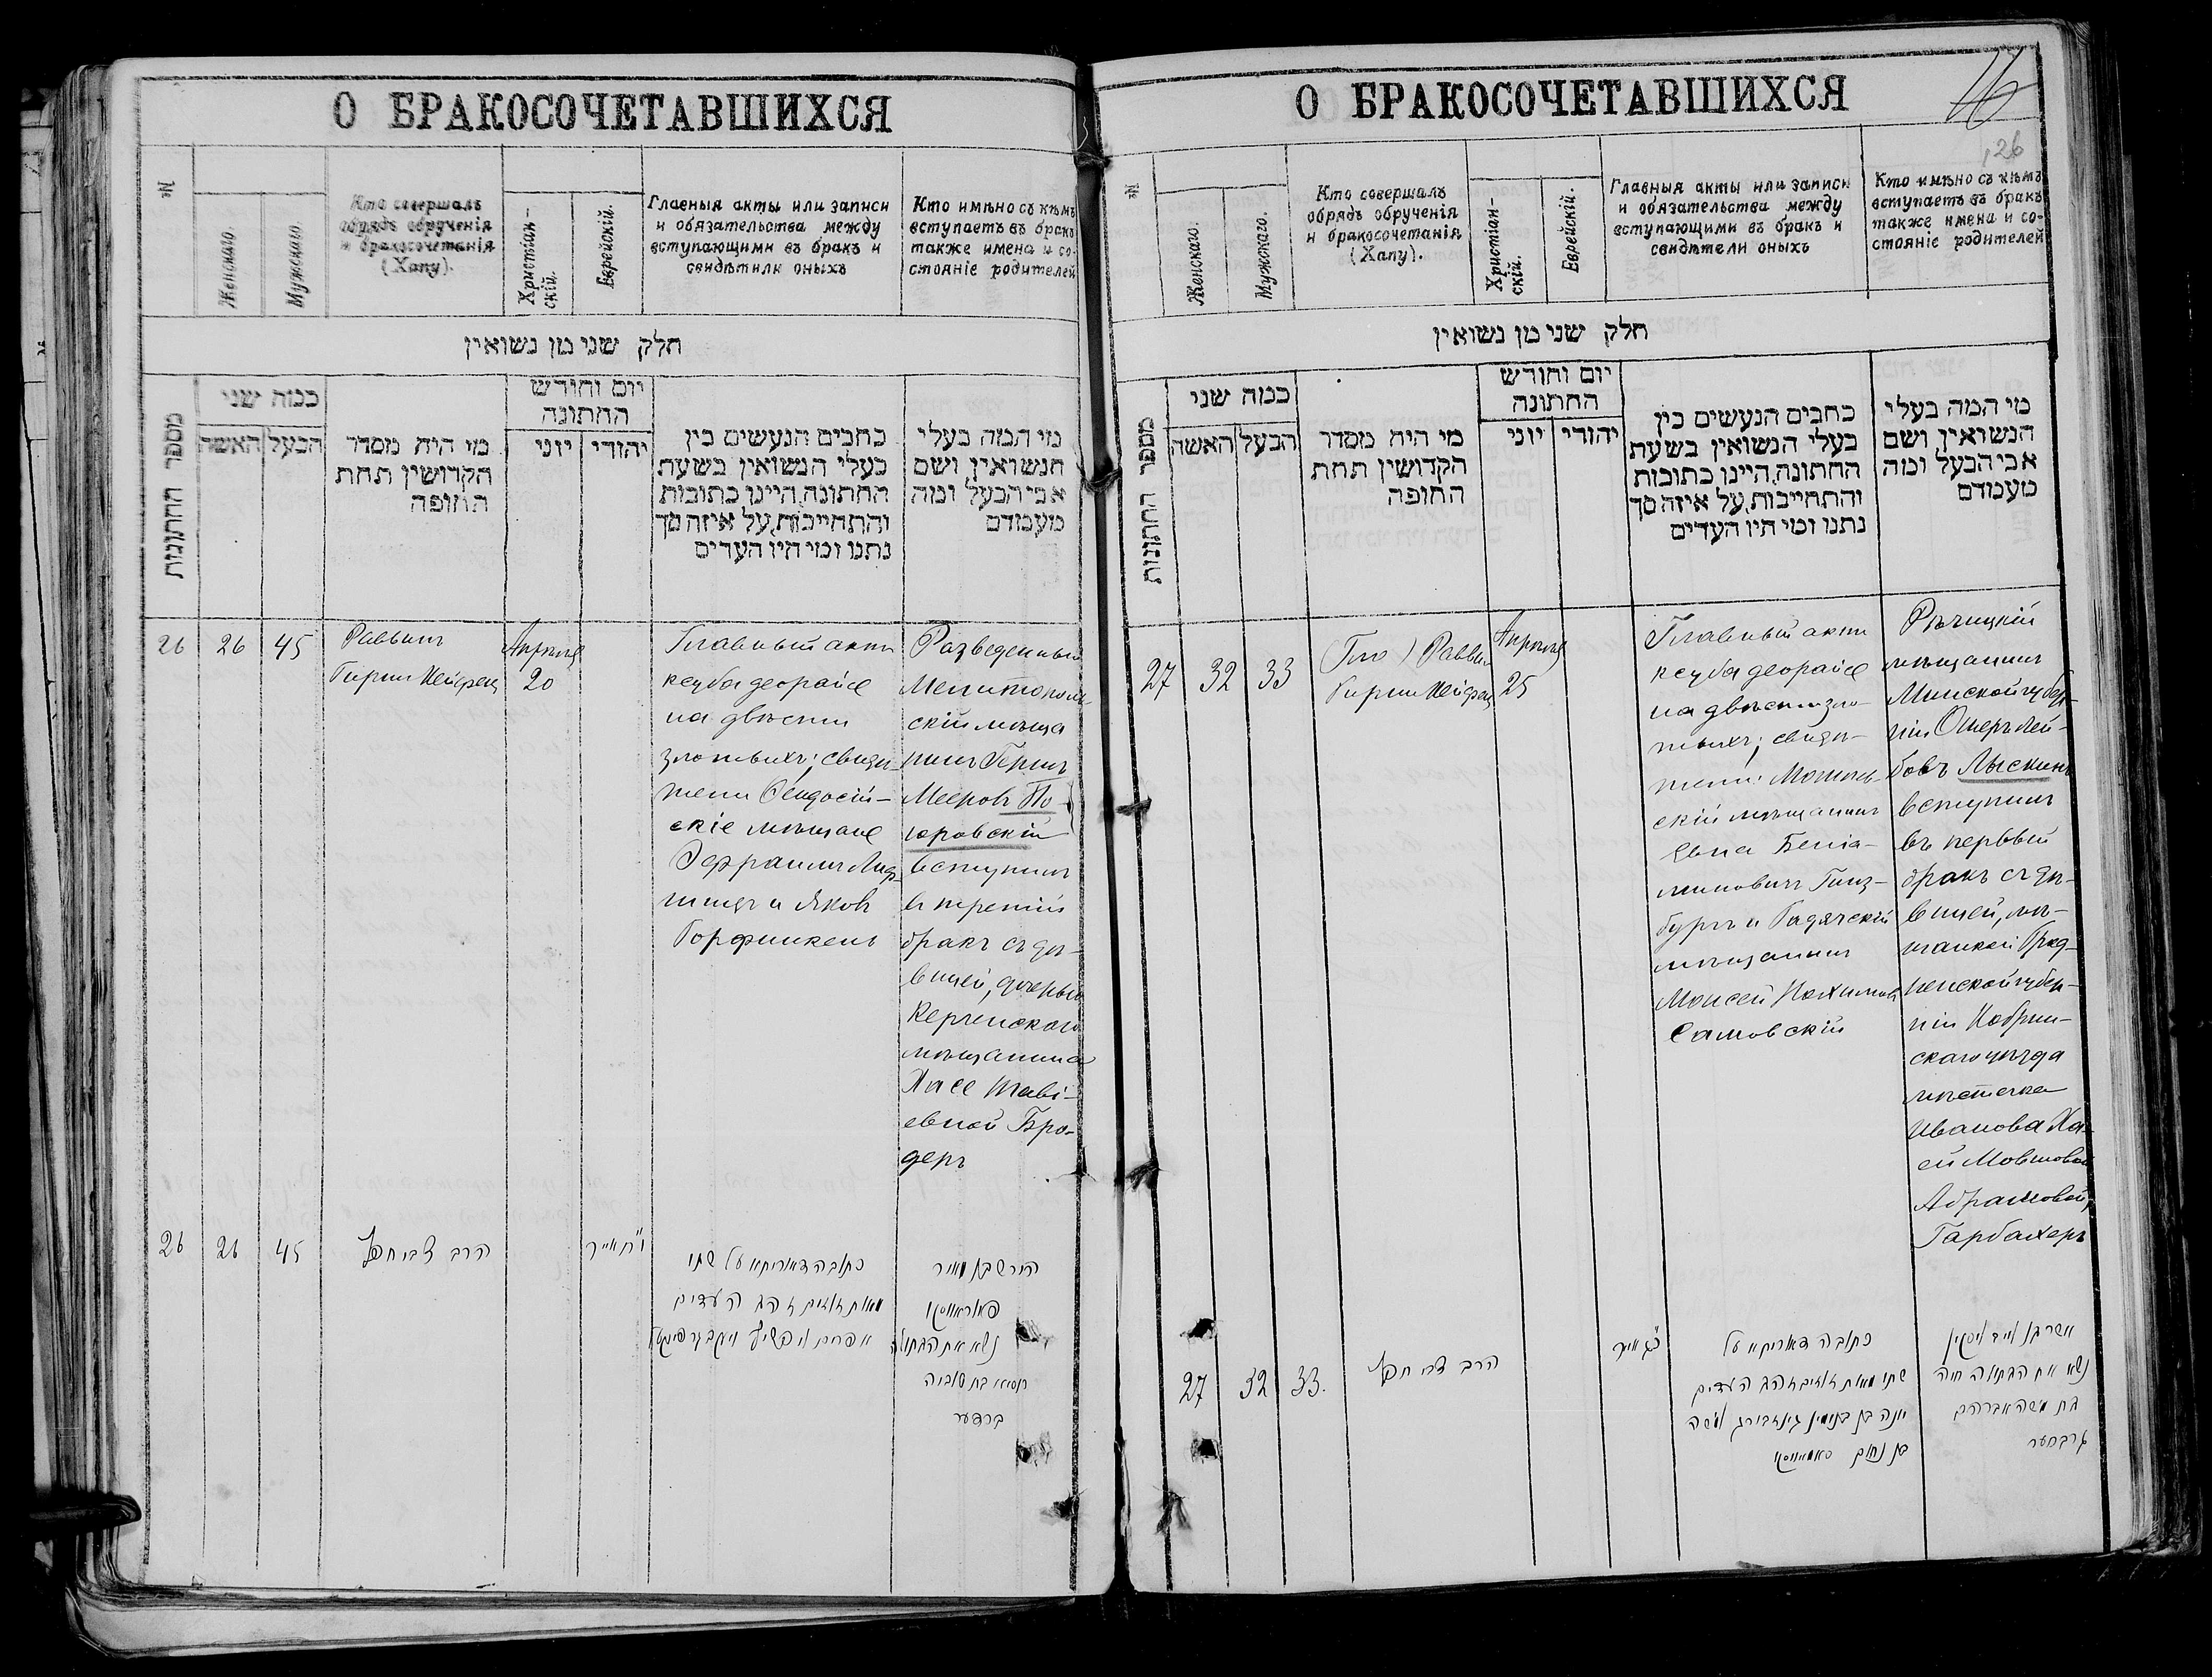 О БРАКОСОЧЕТАВШИХСЯ
№
Женскаго.
Мужскаго.
Кто совершалъ
обрядъ обрученія
и бракосочетанія
(Хапу).
Христіан-
скій.
Еврейскій.
Главныя акты или записи
и обязательства между
вступающими въ бракъ и
свидѣтили оныхъ
Кто имѣно съ кѣмъ
вступаетъ въ бракъ
также имена и со-
стояніе родителей
חלק שני מן נשואין
מספר החתונות
כמה שני
האשה
הבעל
מי היה מסדר
הקדושין תחת
החופה
יום וחודש
החתונה
יוני
יהודי
כתבים הנעשים בין
בעלי הנשואין בשעת
החתונה, היינו כתובות
והתחייבות, על איזה סך
נתנו ומי היו העדים
מי המה בעלי
הנשואין ושם
אבי הבעל ומה
מעמדם
26
26
45
Раввинъ
Гиршъ Хейфецъ
Апрѣля
20
Главный актъ
ксуба деорайсе
на двѣсти
злотыхъ; свидѣ-
тели Ѳеодосій-
скіе мѣщане
Эфраимъ Лиф-
шицъ и Яковъ
Горфинкель
Разведенный
Мелитополь-
скій мѣща
нинъ Гершъ
Мееровъ По-
юровскій
вступилъ
въ третій
бракъ съ дѣ-
вицей, дочерью
Керченскаго
мѣщанина
Хасе Тевi-
евной Бро-
деръ
26
26
45
הרב צבי חפץ
י"ח אייר
כתובה דאורייתא על שתי
מאות זוזים זהב העדים
אפרים ליפשיץ ויעקב גרפינקעל
הירש בן מאיר
פאיוראווסקי
נשא את הבתולה
חסיא בת טוביה
ברדער
О БРАКОСОЧЕТАВШИХСЯ
16
126
№
Женскаго.
Мужскаго.
Кто совершалъ
обрядъ обрученія
и бракосочетанія
(Хапу).
Христіан-
скій.
Еврейскій.
Главныя акты или записи
и обязательства между
вступающими въ бракъ и
свидѣтели оныхъ
Кто имѣно съ кѣмъ
вступаетъ въ бракъ
также имена и со-
стояніе родителей
חלק שני מן נשואין
מספר החתונות
כמה שני
האשה
הבעל
מי היה מסדר
הקדושין תחת
החופה
יום וחודש
החתונה
יוני
יהודי
כתבים הנעשים בין
בעלי הנשואין בשעת
החתונה, היינו כתובות
והתחייבות, על איזה סך
נתנו ומי היו העדים
מי המה בעלי
הנשואין ושם
אבי הבעל ומה
מעמדם
27
32
33
Раввинъ
Гиршъ Хейфецъ
Апрѣля
25
Главный актъ
ксуба деорайсе
на двѣсти зло-
тыхъ; свидѣ-
тели:
скій мѣщанинъ
Евна Бенiа-
миновичъ Гинз-
бургъ и Гадячскій
мѣщанинъ
Моисей Нахимовъ
Самовскій
Рѣчицкій
мѣщанинъ
Минской губер-
ніи Ошеръ Лей-
бовъ Лыскинъ
вступилъ
въ первый
бракъ съ дѣ-
вицей, мѣ-
щанкой Грод-
ненской губер-
ніи Кобрин-
скаго уѣзда
мѣстечка
Иванова Ха-
ей Мовшовой
Абрамовой
Гарбахеръ
27
32
33.
הרב צבי חפץ
כ"ג אייר
כתובה דאורייתא על
שתי מאות זוזים זהב העדים
יונה בן בנימין גינזבורג ומשה
בן נחום סאמאווסקי
אשר בן לייב ליסקין
נשא את הבתולה חיה
בת משה אברהם
גרבחער